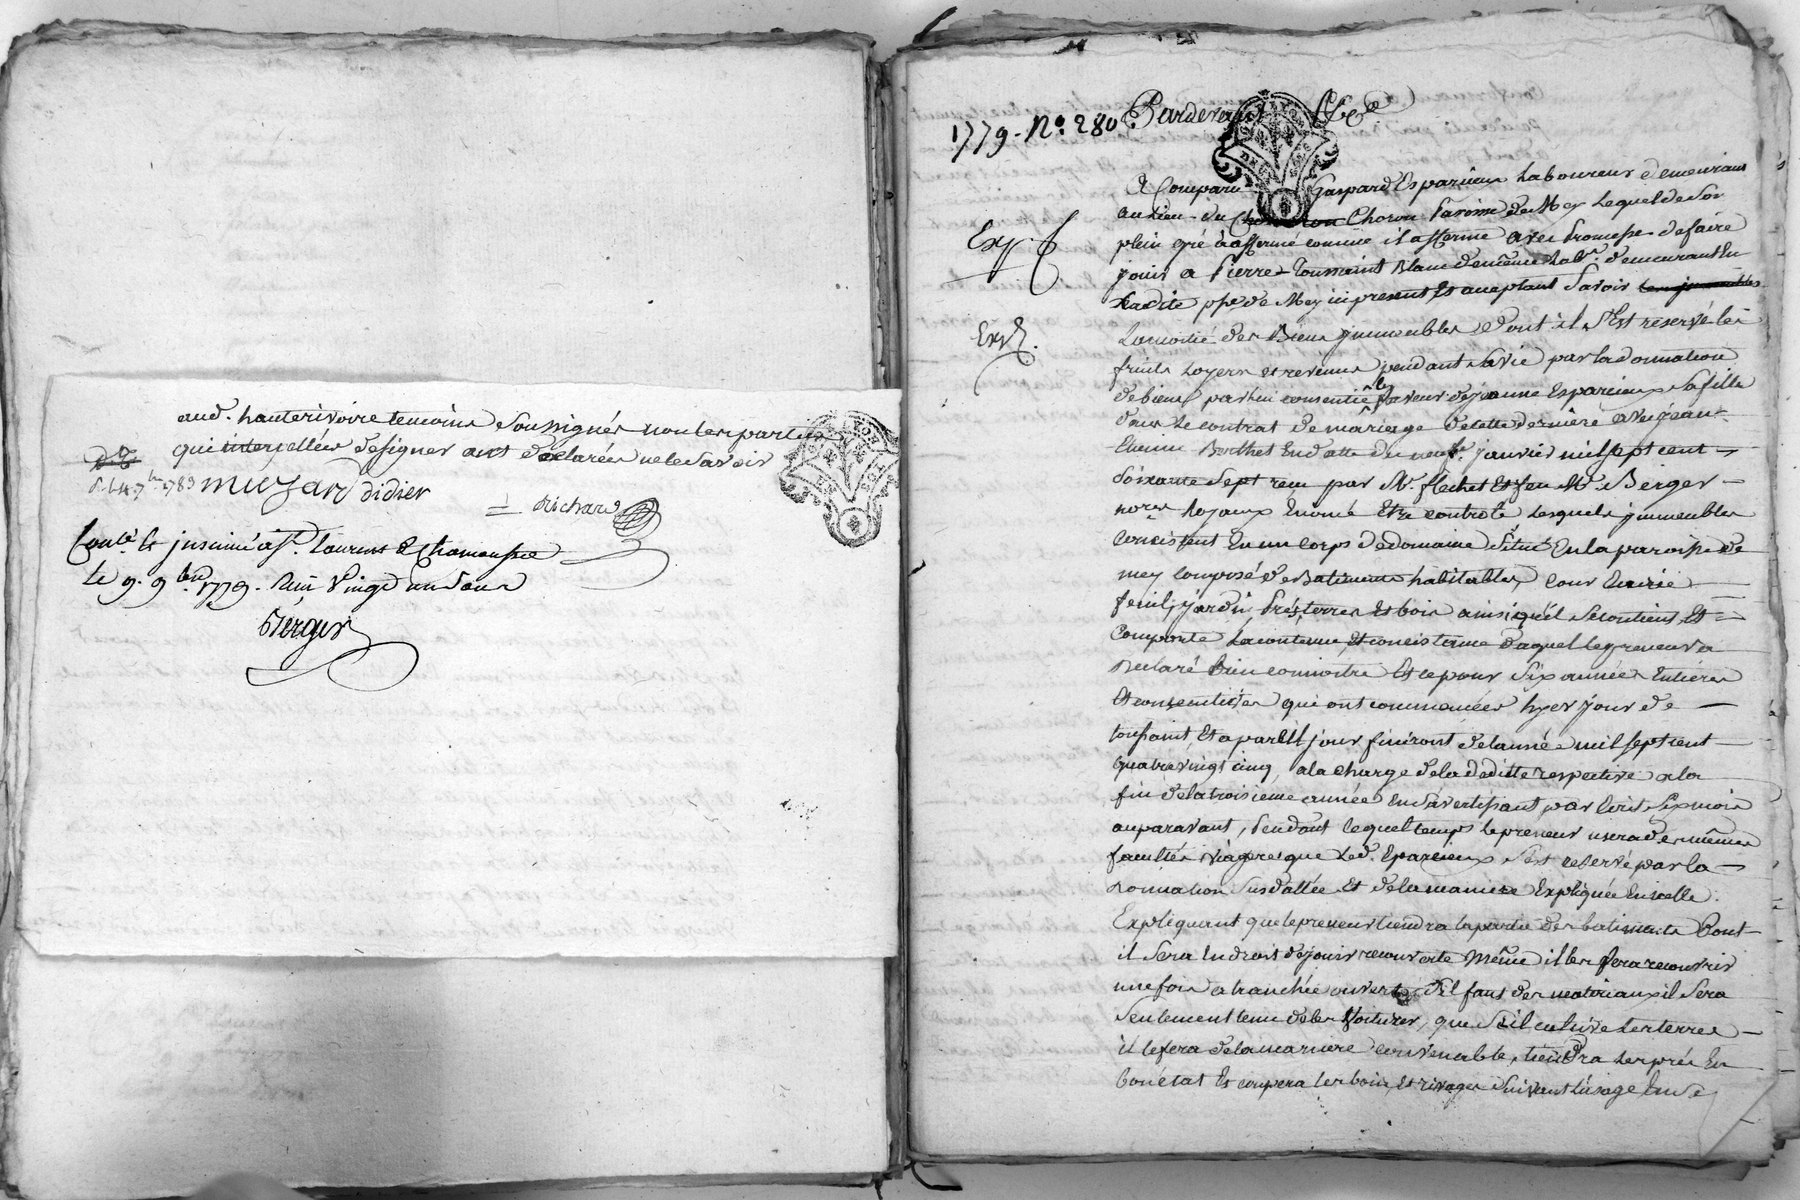 aud. hauterivoire temoins Soussignés non les parties
qui interpellées designer ont declarées nele Savoir
muzard didier
Richard
Conlé & jnsinué a St. Laurent de Chamousset
le 9. 9bre 1779. Reçu Vingt un Sous
Berger
1779. No. 280
Pardevant &Ca
Exp.
Exp.
A Comparu Gaspard Esparcieux Laboureur demeurant
au Lieu du Choron Paroisse de Mey Lequel de Son
plein gré a affermé comme il afferme avec promesse de faire
jouir a Pierre Toussaint Blanc demême Labr. demeurant En
Ladite psse de Mey ici present Et acceptant Savoir les jmmeubles
La moitié des Biens jmmeubles dont il S'Est reservé les
fruits Loyers et revenus pendant Sa vie par la donnation
de biens par lui consentie En faveur de jeanne Esparcieux Sa fille
dans Le contrat de mariage de cette derniere avec jean
Etienne Berthet En datte du neuf janvier mil Sept cent
Soixante Sept reçu par Me. flechet Et feu Me. Berger
nores. Royaux Enoncé Etre controlé Lesquels jmmeubles
Consistent En un corps de domaine Situé En la paroisse de
mey Composé de Batiments habitables, Cour Ecurie
fenil, jardin, Prés, terres Et bois ainsi qu'il Se contient Et
Comporte La contenue, Et consistance duquel le preneur a
Declaré Bien connoitre Et ce pour Six années Entieres
Et consecutives qui ont commencées hyer jour de
toussaint, Et a pareil jour finiront de l'année mil Sept cent
quatre vingt cinq, a la charge de la deditte respective a la
fin de la troisieme année En S'avertissant par Ecrit Six mois
auparavant, Pendant lequel temps le preneur usera des mêmes
facultés Viageres que Led. Eparcieux S'est reservé par la
Donnation Susdattée Et de la maniere Expliquée En icelle.
Expliquant que le preneur tiendra la partie des batiments Dont
il Sera En droit de jouir recouverte Même il les fera recouvrir
une fois a tranchée ouverte S'il faut des materiaux il Sera
Seulement tenu de les Voiturer, que S'il cultive les terres
il le fera de la maniere convenable, tiendra les prés En
bon état Et coupera les bois, Et rivages Suivant L'usage En Se